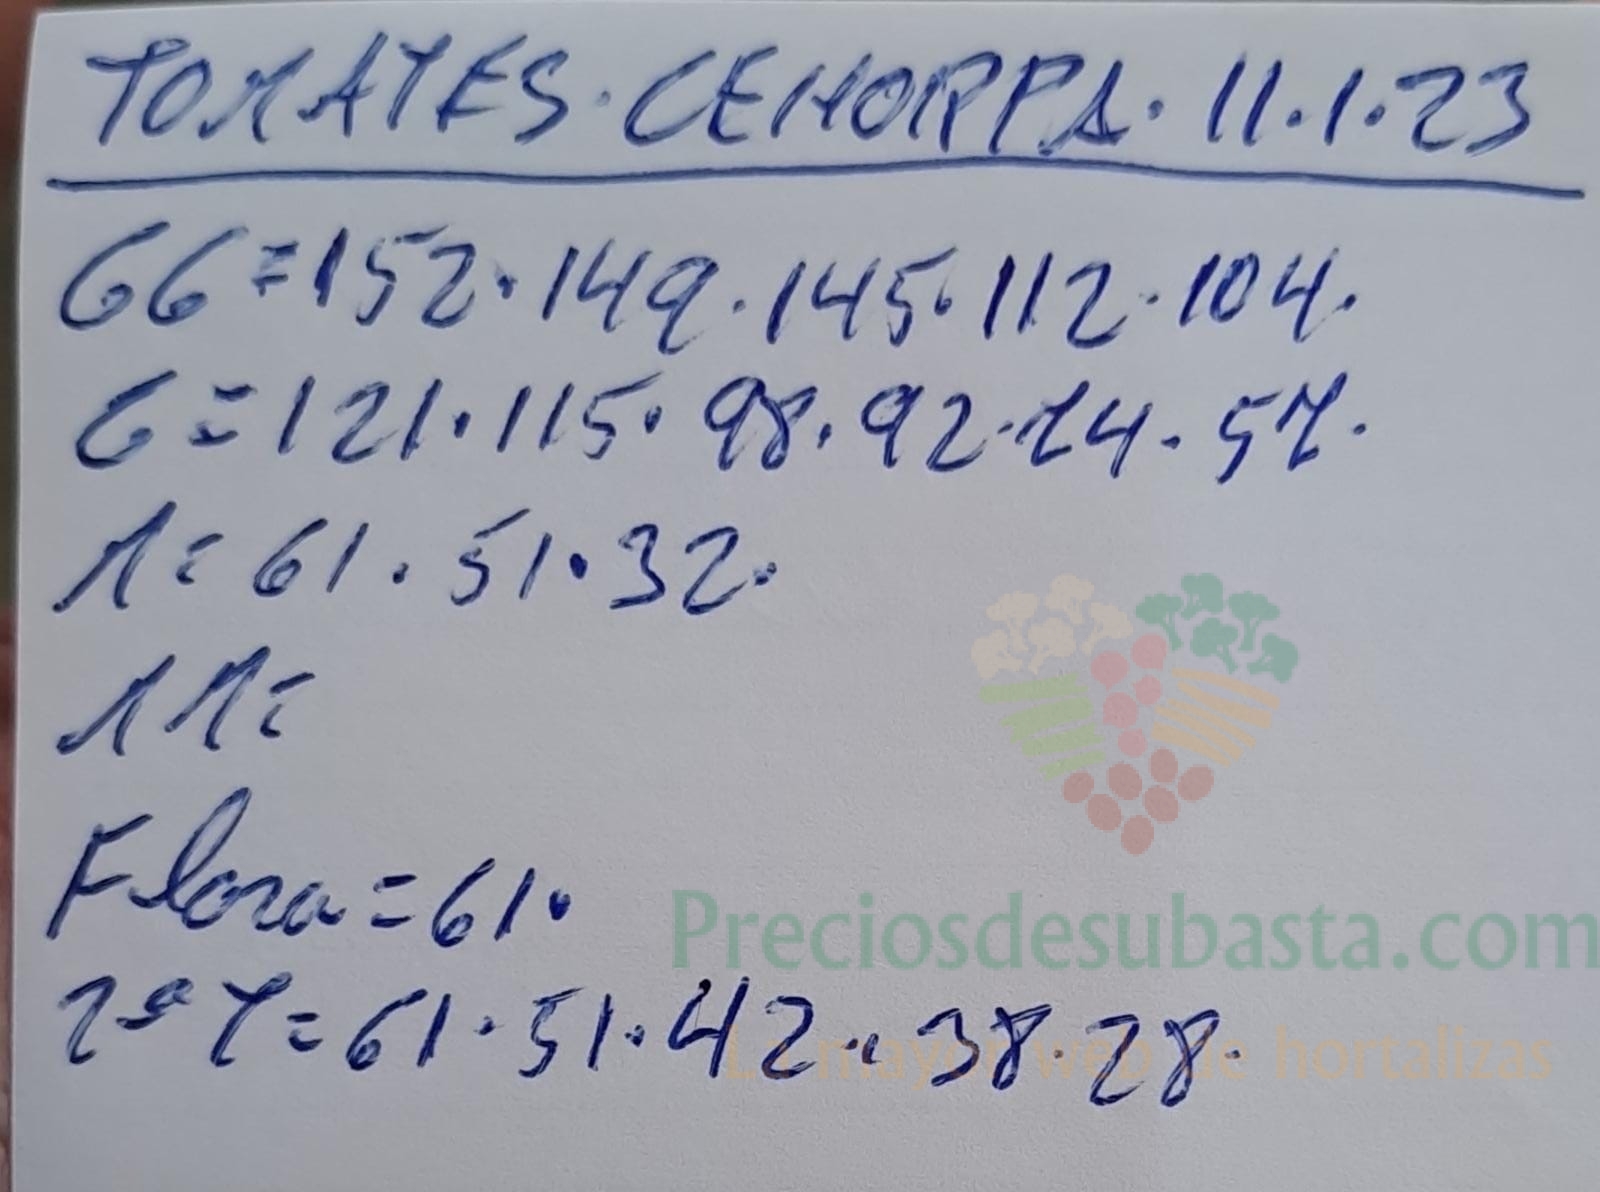 TOMATES. CEHORPA. 11.1.23
GG=152.149.145.112.104.
G=121.115.98.92.74.57.
M=61.51.32.
MM=
Flora=61.
2ªT=61.51.42.38.28.
Preciosdesubasta.com
La mayor web de hortalizas